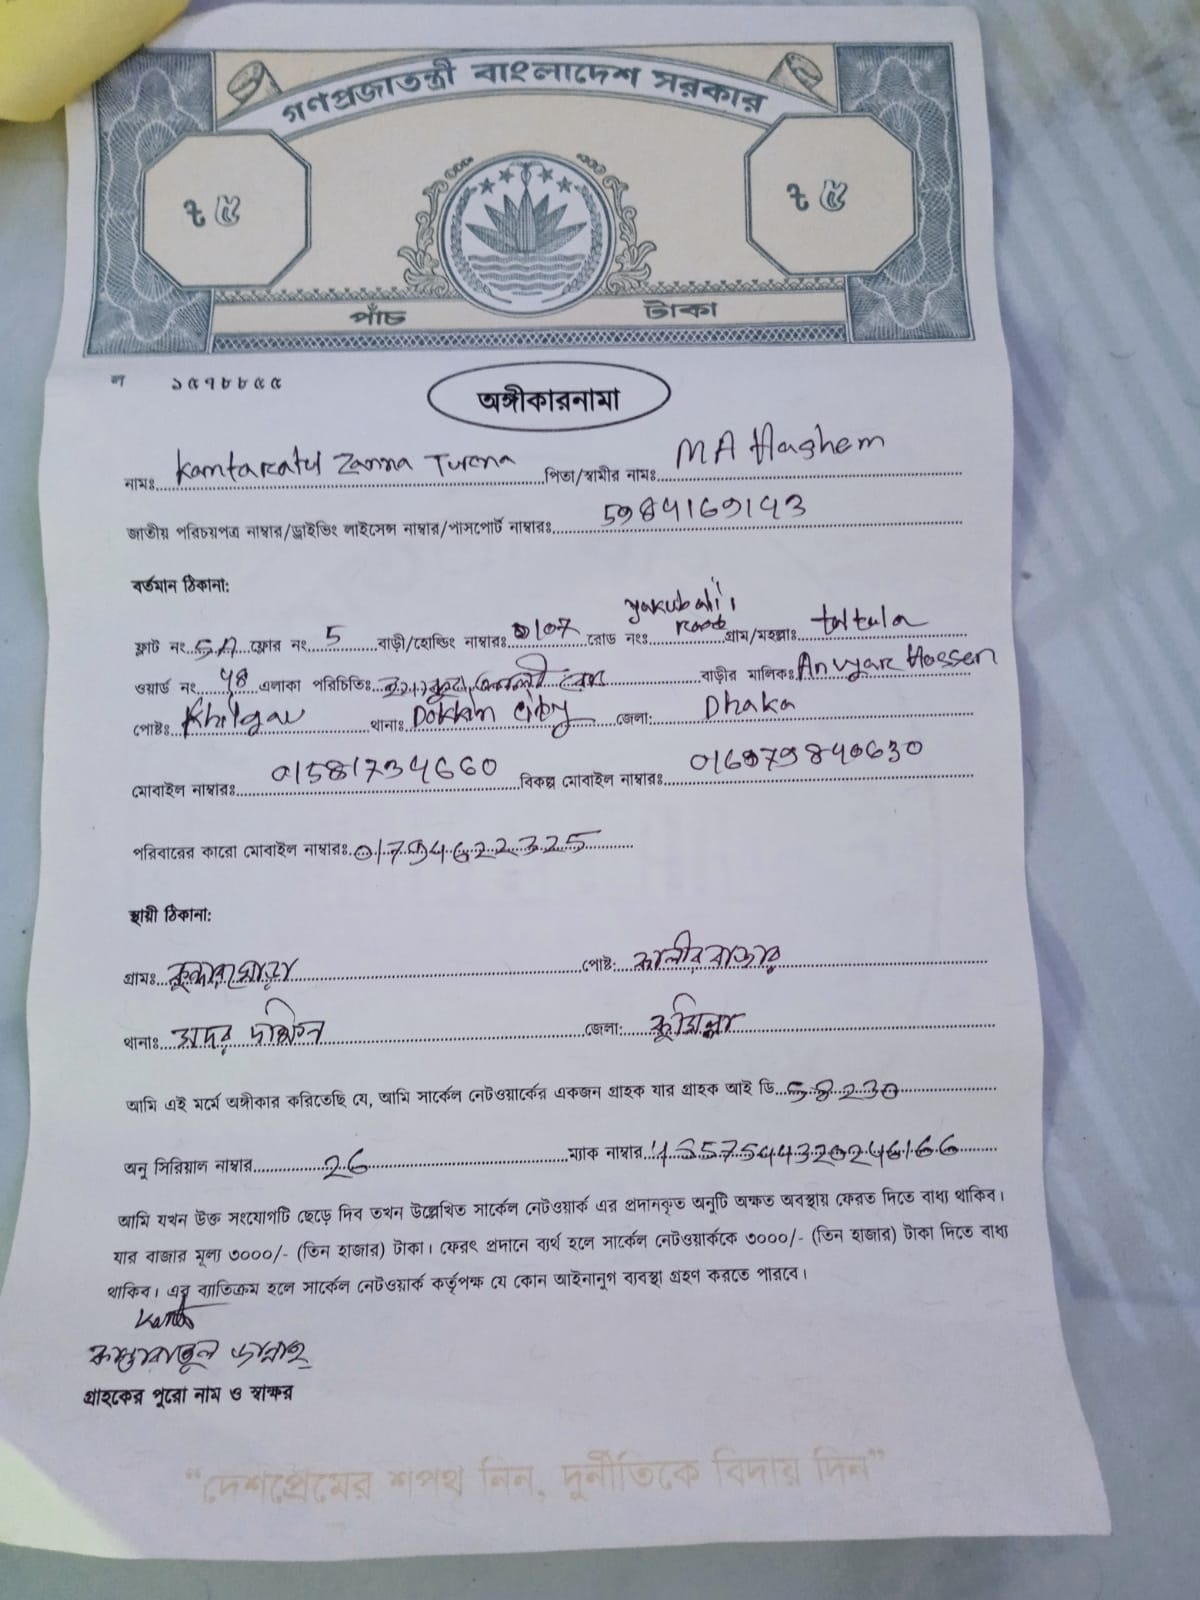 গণপ্রজাতন্ত্রী বাংলাদেশ সরকার
৳ ৫ ৳ ৫
পাঁচ টাকা
ল ১৫৭৮৮৫৫
অঙ্গীকারনামা
নামঃ Kamtaratul Zanna Turna পিতা/স্বামীর নামঃ MA Hashem
জাতীয় পরিচয়পত্র নাম্বার/ড্রাইভিং লাইসেন্স নাম্বার/পাসপোর্ট নাম্বারঃ
বর্তমান ঠিকানা:
ফ্লাট নং 5A ফ্লোর নং 5 বাড়ী/হোল্ডিং নাম্বারঃ রোড নং yakubali Road গ্রাম/মহল্লাঃ taltula
ওয়ার্ড নং এলাকা পরিচিতিঃ বাড়ীর মালিকঃ Anwar Hossen
পোষ্টঃ Khilgau থানাঃ Dokkin city জেলা: Dhaka
মোবাইল নাম্বারঃ 01581734660 বিকল্প মোবাইল নাম্বারঃ
পরিবারের কারো মোবাইল নাম্বারঃ 01794622325
স্থায়ী ঠিকানা:
গ্রামঃ পোষ্ট: কালীর বাজার
থানাঃ সদর দক্ষিন জেলা: কুমিল্লা
আমি এই মর্মে অঙ্গীকার করিতেছি যে, আমি সার্কেল নেটওয়ার্কের একজন গ্রাহক যার গ্রাহক আই ডি 58230
অনু সিরিয়াল নাম্বার 26 ম্যাক নাম্বার
আমি যখন উক্ত সংযোগটি ছেড়ে দিব তখন উল্লেখিত সার্কেল নেটওয়ার্ক এর প্রদানকৃত অনুটি অক্ষত অবস্থায় ফেরত দিতে বাধ্য থাকিব।
যার বাজার মূল্য ৩০০০/- (তিন হাজার) টাকা। ফেরৎ প্রদানে ব্যর্থ হলে সার্কেল নেটওয়ার্ককে ৩০০০/- (তিন হাজার) টাকা দিতে বাধ্য
থাকিব। এর ব্যাতিক্রম হলে সার্কেল নেটওয়ার্ক কর্তৃপক্ষ যে কোন আইনানুগ ব্যবস্থা গ্রহণ করতে পারবে।
গ্রাহকের পুরো নাম ও স্বাক্ষর
“দেশপ্রেমের শপথ নিন, দুর্নীতিকে বিদায় দিন”